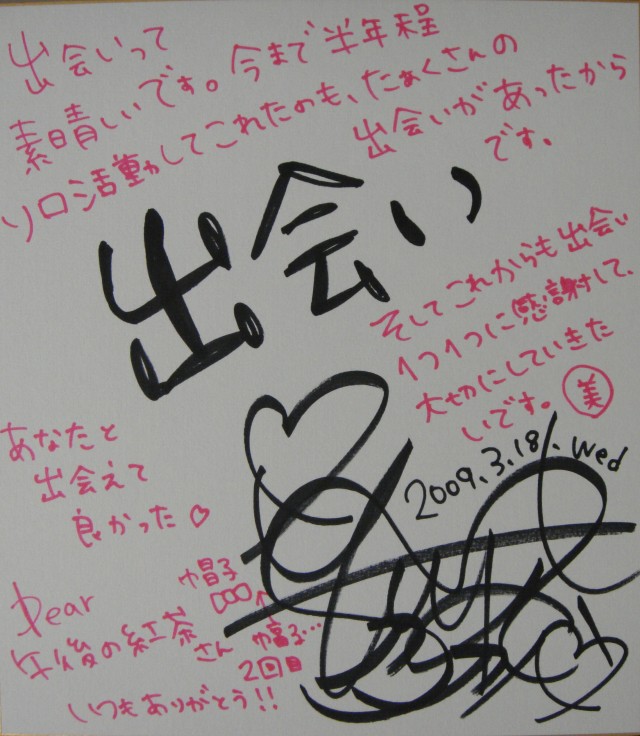 出会いって
素晴しいです。今まで半年程
ソロ活動してこれたのも、たぁくさんの
出会いがあったから
です。
出会い
そしてこれからも出会い
1つ1つに感謝して、
大切にしていきた
いです。美
2009.3.18. Wed
あなたと
出会えて
良かった♡
Dear
午後の紅茶
さん
帽子
帽子…
2回目
いつもありがとう!!